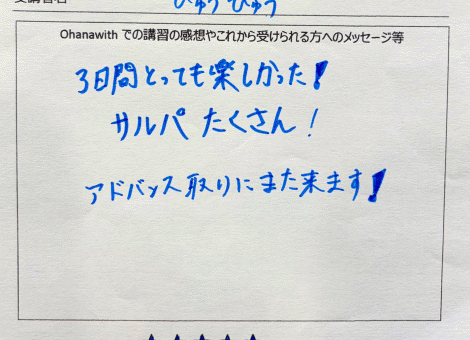 ひゅうひゅう
Ohanawith での講習の感想やこれから受けられる方へのメッセージ等
3日間とっても楽しかった!
サルパ たくさん!
アドバンス取りにまた来ます!